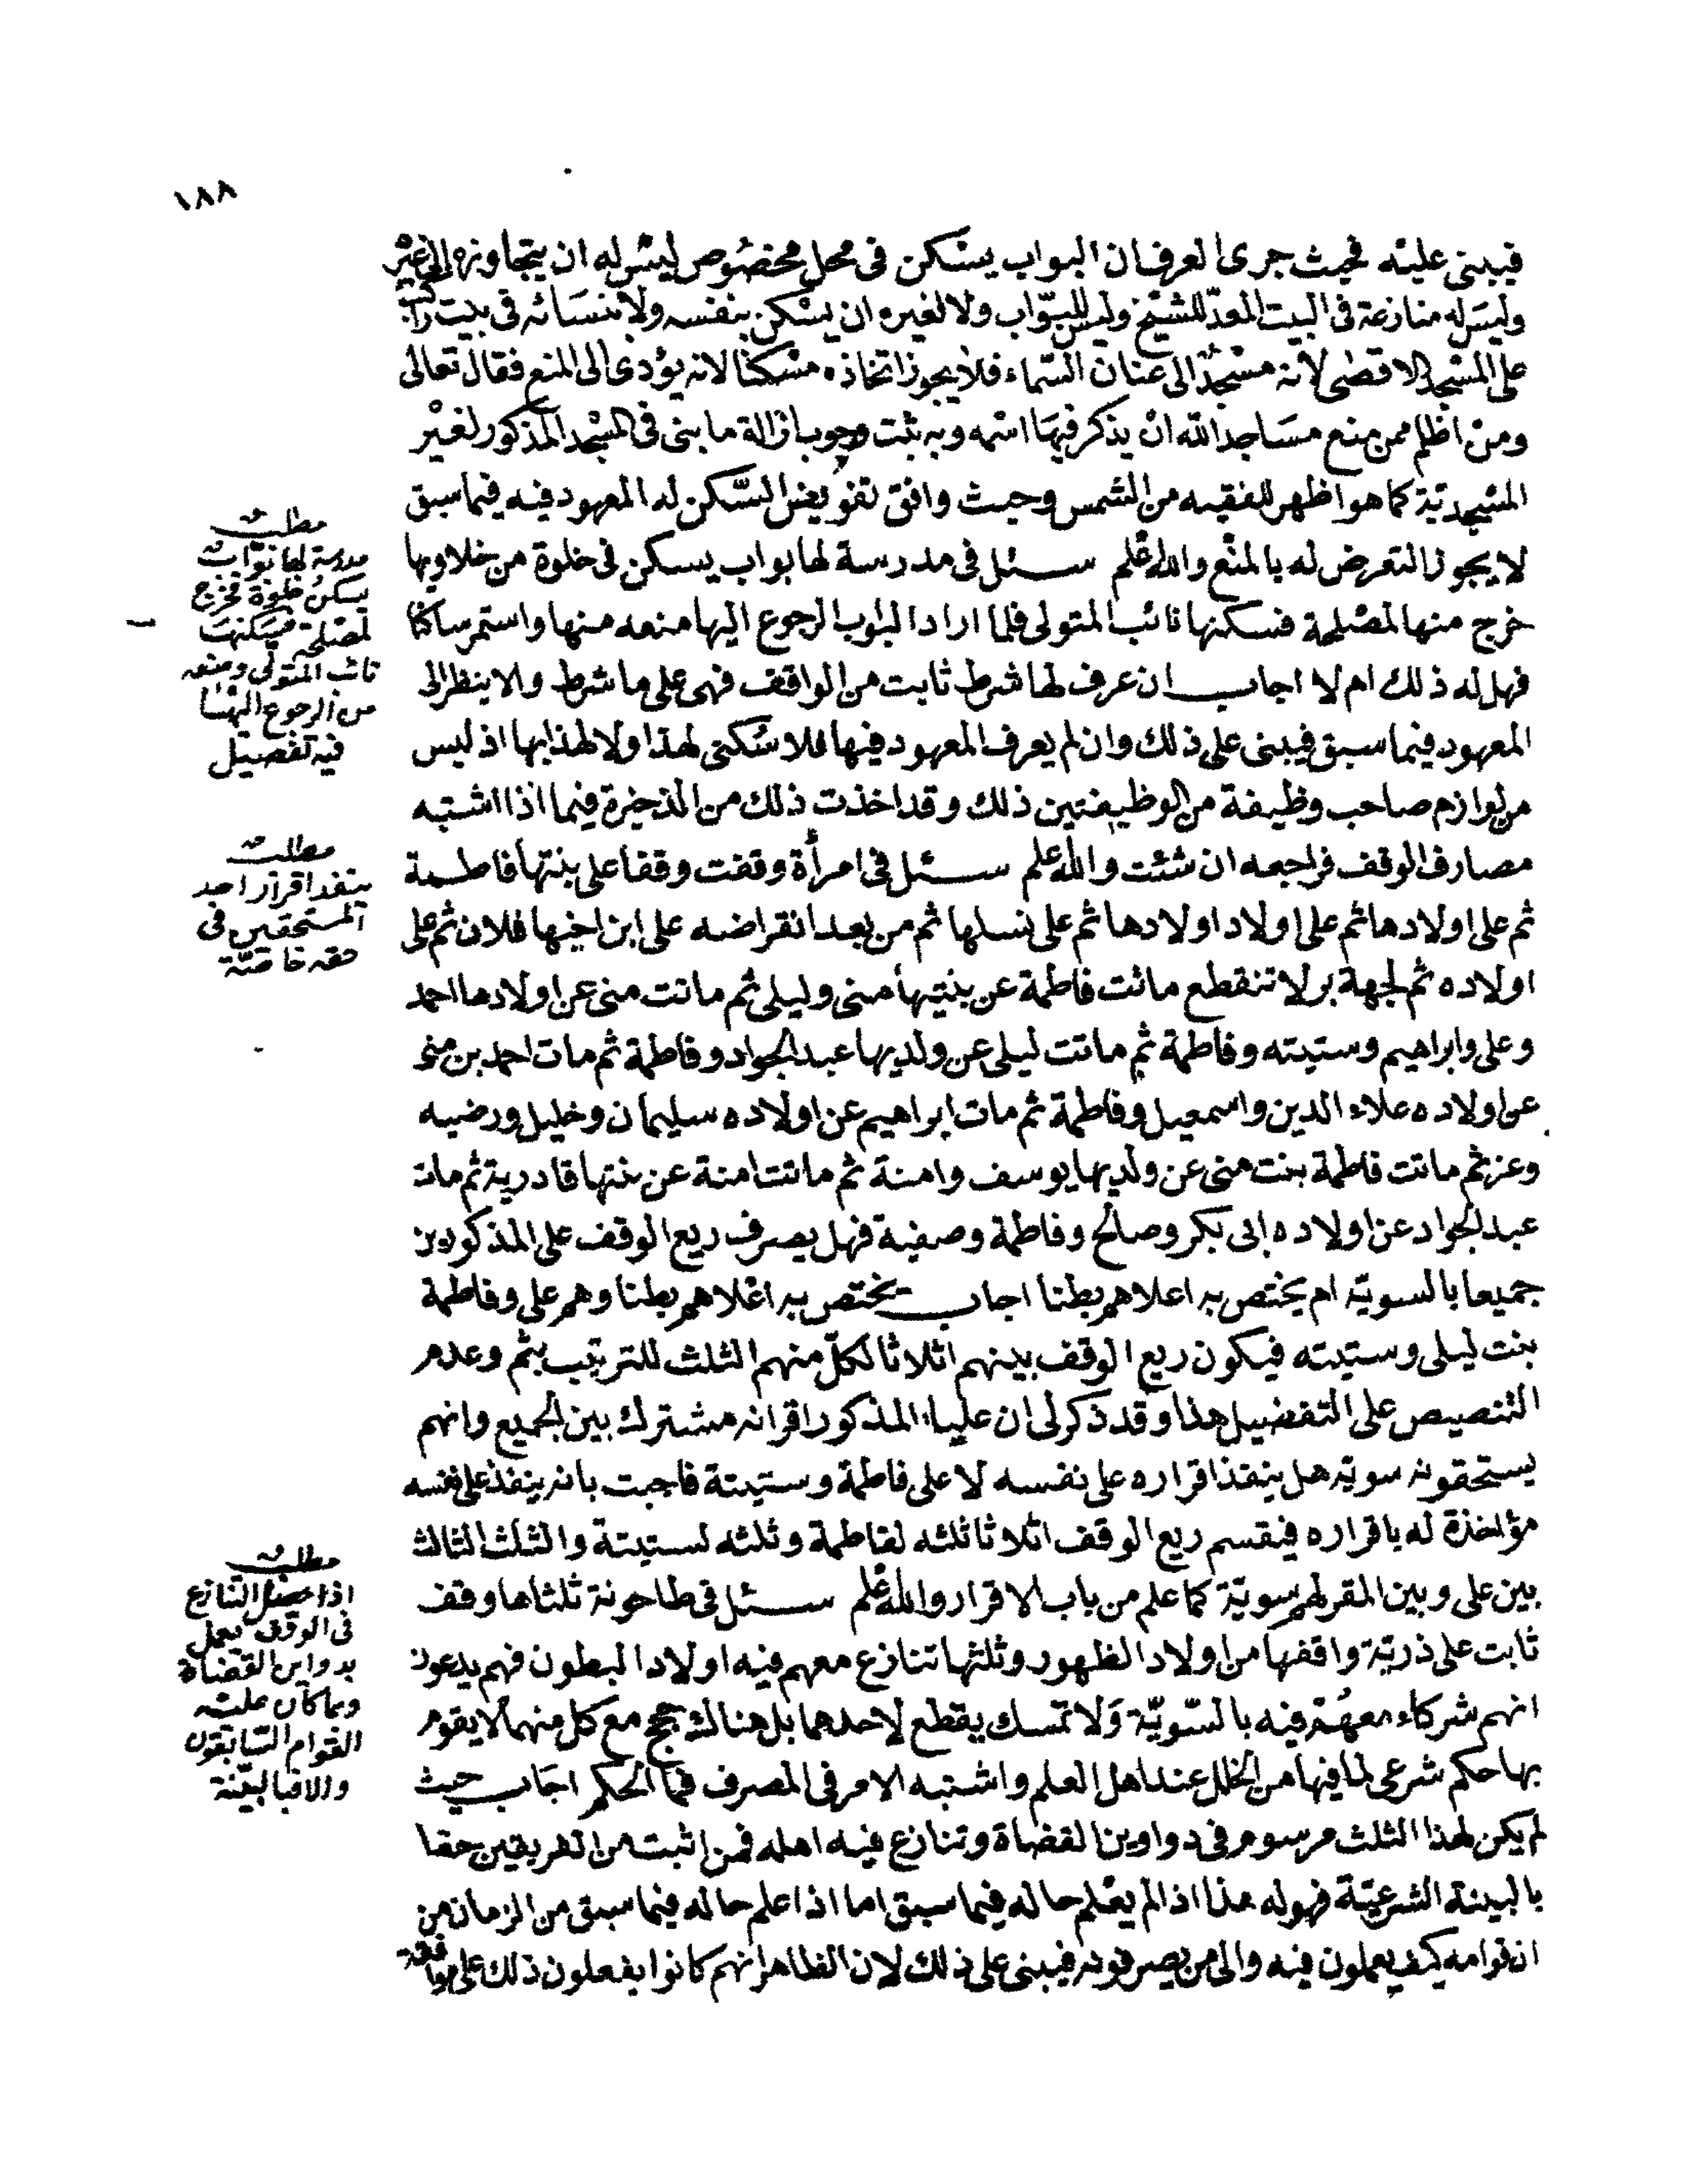 ١٨٨
فيبنى عليه فحيث جرى العرف ان البواب يسكن فى محل مخصوص ليس له ان يتجاوزه الى غيره
وليس له منازعة فى البيت المعد للشيخ وليس للبواب ولا لغيره ان يسكن بنفسه ولا بنسائه فى بيت راكب
على المسجد الاقصى لانه مسجد الى عنان السماء فلا يجوز اتخاذه مسكنا لانه يؤدى الى المنع فقال تعالى
ومن اظلم ممن منع مساجد الله ان يذكر فيها اسمه وبه ثبت وجوب ازالة ما بنى فى المسجد المذكور لغير
المسجدية كما هو اظهر للفقيه من الشمس وحيث وافق تفويض السكن له المعهود فيه فيما سبق
لا يجوز التعرض له بالمنع والله اعلم سئل فى مدرسة لها بواب يسكن فى خلوة من خلاويها
خرج منها لمصلحة فسكنها نائب المتولى فلما اراد البواب الرجوع اليها منعه منها واستمر ساكنا
فهل له ذلك ام لا اجاب ان عرف لها شرط ثابت من الواقف فهى على ما شرط ولا ينظر الى
المعهود فيما سبق فيبنى على ذلك وان لم يعرف المعهود فيها فلا سكنى لهذا ولا لهذا بها اذ ليس
من لوازم صاحب وظيفة من الوظيفتين ذلك وقد اخذت ذلك من الذخيرة فيما اذا اشتبه
مصارف الوقف فراجعه ان شئت والله اعلم سئل فى امرأة وقفت وقفا على بنتها فاطمة
ثم على اولادها ثم على اولاد اولادها ثم على نسلها ثم من بعد انقراضه على ابن اخيها فلان ثم على
اولاده ثم لجهة بر لا تنقطع ماتت فاطمة عن بنتيها منى وليلى ثم ماتت منى عن اولادها احمد
وعلى وابراهيم وستيته وفاطمة ثم ماتت ليلى عن ولديها عبد الجواد وفاطمة ثم مات احمد بن منى
عن اولاده علاء الدين واسمعيل وفاطمة ثم مات ابراهيم عن اولاده سليمان وخليل ورضيه
وعز ثم ماتت فاطمة بنت منى عن ولديها يوسف وامنة ثم ماتت امنة عن بنتها قادرية ثم مات
عبد الجواد عن اولاده ابى بكر وصالح وفاطمة وصفية فهل يصرف ريع الوقف على المذكورين
جميعا بالسوية ام يختص به اعلاهم بطنا اجاب يختص به اعلاهم بطنا وهم على وفاطمة
بنت ليلى وستيته فيكون ريع الوقف بينهم اثلاثا لكل منهم الثلث للترتيب بثم وعدم
التنصيص على التفضيل هذا وقد ذكر لى ان عليا المذكور اقر انه مشترك بين الجميع وانهم
يستحقونه سوية هل ينفذ اقراره على نفسه لا على فاطمة وستيتة فاجبت بانه ينفذ على نفسه
مؤاخذة له باقراره فيقسم ريع الوقف اثلاثا ثلثه لفاطمة وثلثه لستيتة والثلث الثالث
بين على وبين المقر لهم سوية كما علم من باب الاقرار والله اعلم سئل فى طاحونة ثلثاها وقف
ثابت على ذرية واقفها من اولاد الظهور وثلثها تنازع معهم فيه اولاد البطون فهم يدعون
انهم شركاء معهم فيه بالسوية ولا تمسك يقطع لاحدهما بل هنالك حجج مع كل منهما لا يقوم
بها حكم شرعى لما فيها من الخلل عند اهل العلم واشتبه الامر فى المصرف فما الحكم اجاب حيث
لم يكن لهذا الثلث مرسوم فى دواوين القضاة وتنازع فيه اهله فمن اثبت من الفريقين حقا
بالبينة الشرعية فهو له هذا اذا لم يعلم حاله فيما سبق اما اذا علم حاله فيما سبق من الزمان من
ان قوامه كيف يعملون فيه والى من يصرفونه فيبنى على ذلك لان الظاهر انهم كانوا يفعلون ذلك على موافقة
مطلب
مدرسة لها بواب
يسكن خلوة فخرج
لمصلحة فسكنها
نائب المتولى ومنعه
من الرجوع اليها
فيه تفصيل
مطلب
ينفذ اقرار احد
المستحقين فى
حقه خاصة
مطلب
اذا حصل التنازع
فى الوقف يعمل
بدواين القضاة
وبما كان عليه
القوام السابقون
والا فبالبينة